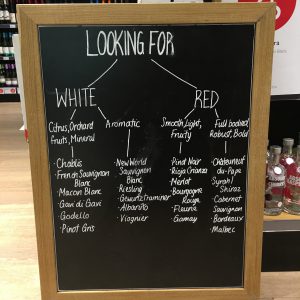 LOOKING FOR
WHITE
RED
Citrus, Orchard
Fruits, Mineral
Aromatic
Smooth, Light,
Fruity
Full bodied
Robust, Bold
· Chablis
· French Sauvignon
Blanc
· Macon Blanc
· Gavi di Gavi
· Godello
· Pinot Gris
· New World
Sauvignon
Blanc
· Riesling
· Gewurtztraminer
· Albarino
· Viognier
· Pinot Noir
· Rioja Crianza
· Merlot
· Bourgogne
Rouge
· Fleurie
· Gamay
· Chateauneuf
du-Pape
· Syrah/
Shiraz
· Cabernet
Sauvignon
· Bordeaux
· Malbec